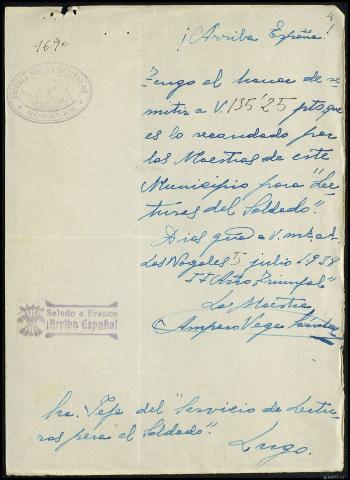 4
1690
NOGALES
¡Arriba España!
Tengo el honor de re-
mitir a V. 135'25 pts, que
es lo recaudado por
los Maestros de este
Municipio para "Lec-
turas del Soldado".
Dios gue a V. ms. as.
Los Nogales 5 julio 1938
II Año Triunfal
La Maestra
Amparo Vega
Saludo a Franco
¡Arriba España!
Sr. Jefe del "Servicio de Lectu-
ras para el Soldado".
Lugo.